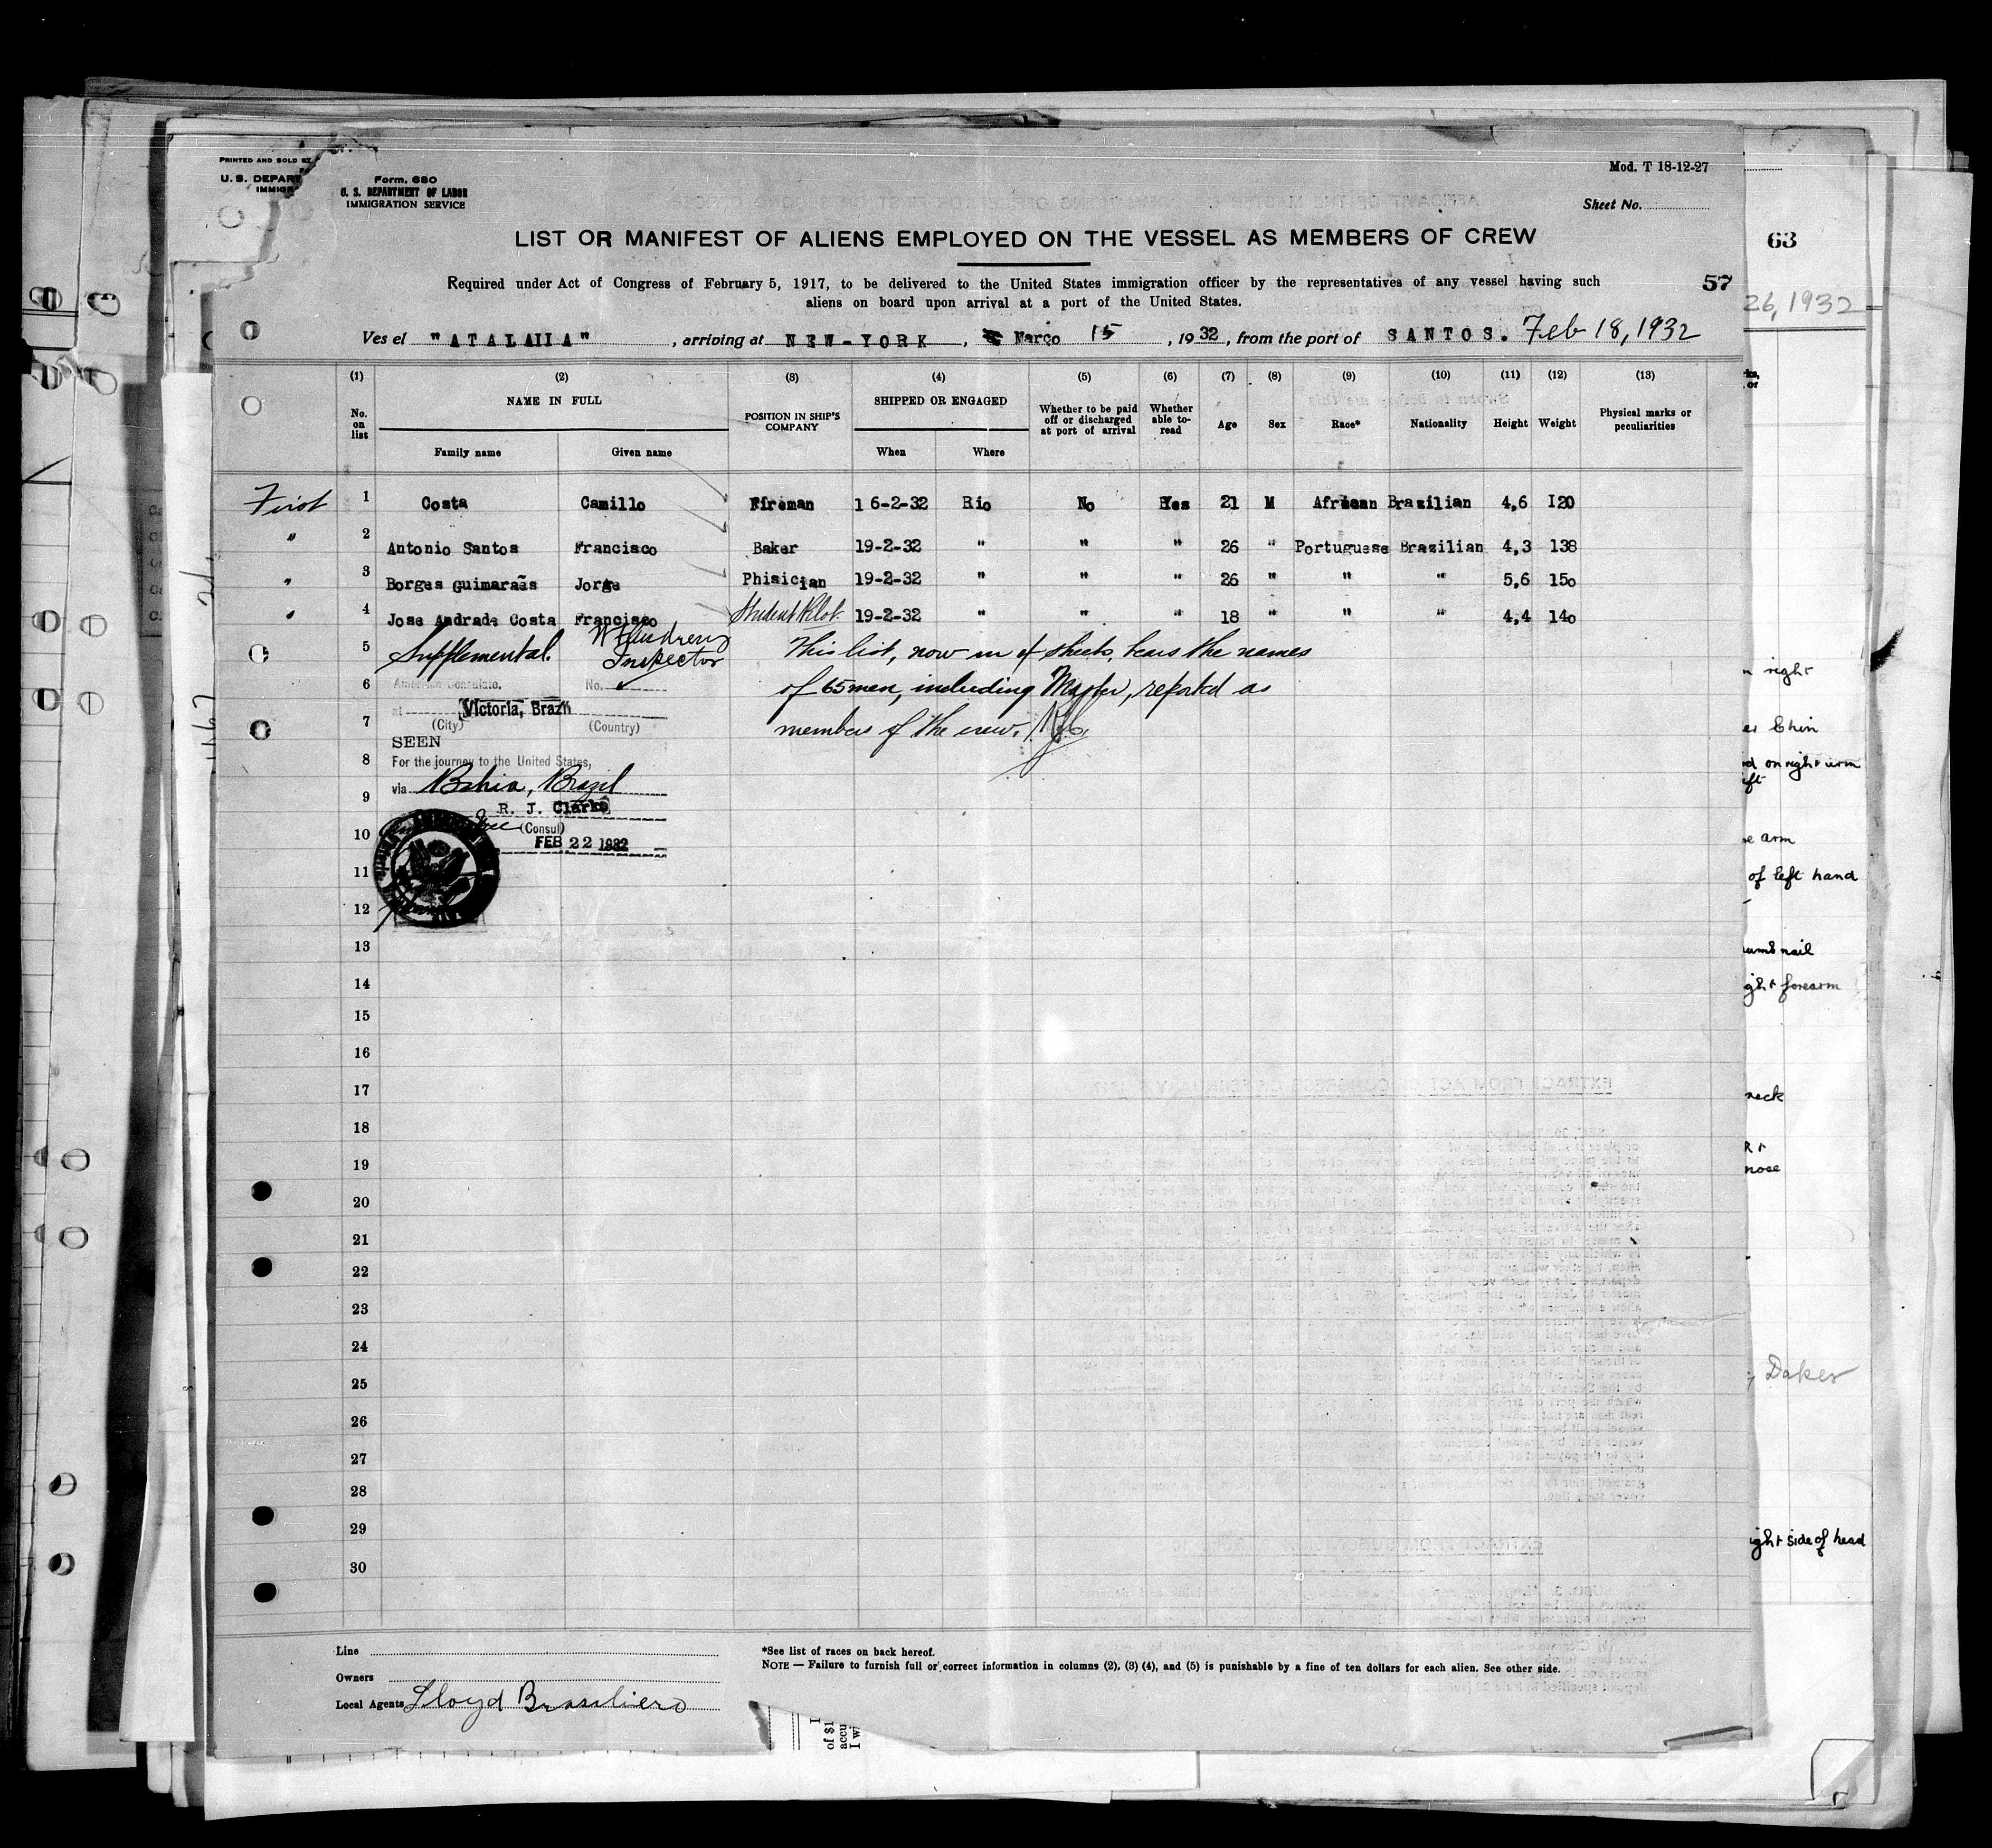 PRINTED AND SOLD BY
U. S. DEPART
IMMIGR
Form. 680
U. S. DEPARTMENT OF LABOR
IMMIGRATION SERVICE
Mod. T 18-12-27
Sheet No.
LIST OR MANIFEST OF ALIENS EMPLOYED ON THE VESSEL AS MEMBERS OF CREW
63
Required under Act of Congress of February 5, 1917, to be delivered to the United States immigration officer by the representatives of any vessel having such
aliens on board upon arrival at a port of the United States.
57
26, 1932
Ves el "ATALAIIA", arriving at NEW-YORK, Março 15, 1932, from the port of SANTOS. Feb 18, 1932
(1) (2) (3) (4) (5) (6) (7) (8) (9) (10) (11) (12) (13)
No. on list
NAME IN FULL
Family name Given name
POSITION IN SHIP'S COMPANY
SHIPPED OR ENGAGED
When Where
Whether to be paid off or discharged at port of arrival
Whether able to-read
Age Sex Race* Nationality Height Weight
Physical marks or peculiarities
First 1 Costa Camillo Fireman 16-2-32 Rio No Yes 21 M African Brazilian 4,6 I20
" 2 Antonio Santos Francisco Baker 19-2-32 " " " 26 " Portuguese Brazilian 4,3 138
" 3 Borges Guimaraẽs Jorge Phisician 19-2-32 " " " 26 " " " 5,6 150
" 4 Jose Andrade Costa Francisco Student Pilot 19-2-32 " " " 18 " " " 4,4 140
5 Supplemental. Inspector This list, now in 4 sheets, bears the names
6 American Consulate. No. of 65 men, including Master, reported as
7 at Victoria, Brazil members of the crew.
(City) (Country)
SEEN
8 For the journey to the United States,
via Bahia, Brazil
9 R. J. Clarke
10 (Consul)
FEB 22 1932
11
12
13
14
15
16
17
18
19
20
21
22
23
24
25
26
27
28
29
30
right
Chin
on right arm
arm
of left hand
nail
forearm
neck
nose
Dakes
side of head
Line
Owners
Local Agents Lloyd Brasiliero
*See list of races on back hereof.
NOTE — Failure to furnish full or correct information in columns (2), (3) (4), and (5) is punishable by a fine of ten dollars for each alien. See other side.